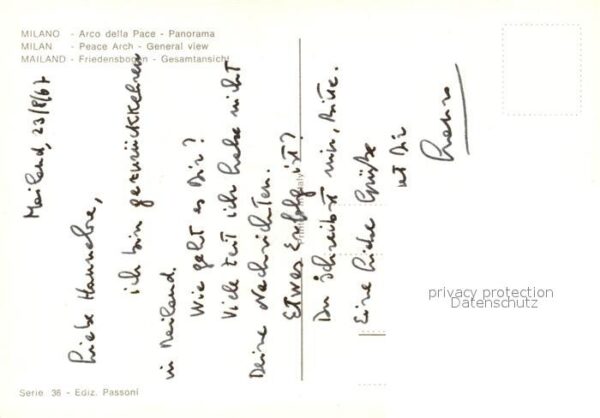 MILANO - Arco della Pace - Panorama
MILAN - Peace Arch - General view
MAILAND - Friedensbogen - Gesamtansicht
Mailand, 23/8/67
Liebe Hannelore,
ich bin gezurückkehren
in Mailand.
Wie geht es Dir?
Viele Zeit ich habe nicht
Deine Nachrichten.
Etwas Erfolg ist?
Du schreibst mir, Bitte.
Eine liebe Grüße
at Dir
Printed in Italy
privacy protection
Datenschutz
Serie 36 - Ediz. Passoni